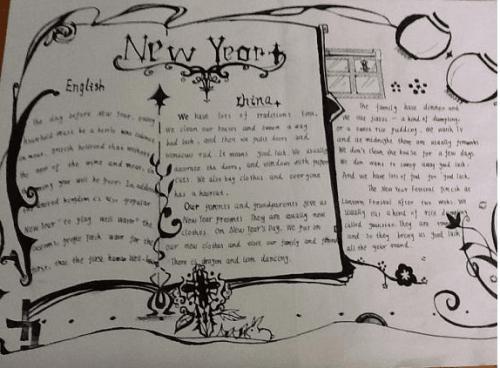 New Year
English
China
The day before New Year, every
household must be a bottle
in meat. British believed that without
the year of the wine and meat, in
coming year will be poor. In addition
United Kingdom is also popular
New Year "to play well water" the
people fetch water for the
first, that the first
We have lots of traditions
We clean our houses and sweep away
bad luck. And then we put doors and
windows red. It means good luck. We usually
decorate the doors and windows with paper
cuts. We also buy clothes and everyone
has a haircut.
Our parents and grandparents give us
New Year presents. They are usually new
clothes. On New Year's Day, we put on
our new clothes and visit our family and friends
There is dragon and lion dancing.
The family have dinner and
a kind of dumpling,
or a sweet rice pudding. We watch TV
and at midnight there are usually fireworks
We don't clean the house for a few days.
We don't want to sweep away good luck.
And we have lots of food for good luck.
The New Year Festival finish at
Lantern Festival after two weeks. We
usually eat a kind of rice
called yuanxiao. They are
and so they bring us good luck
all the year round.